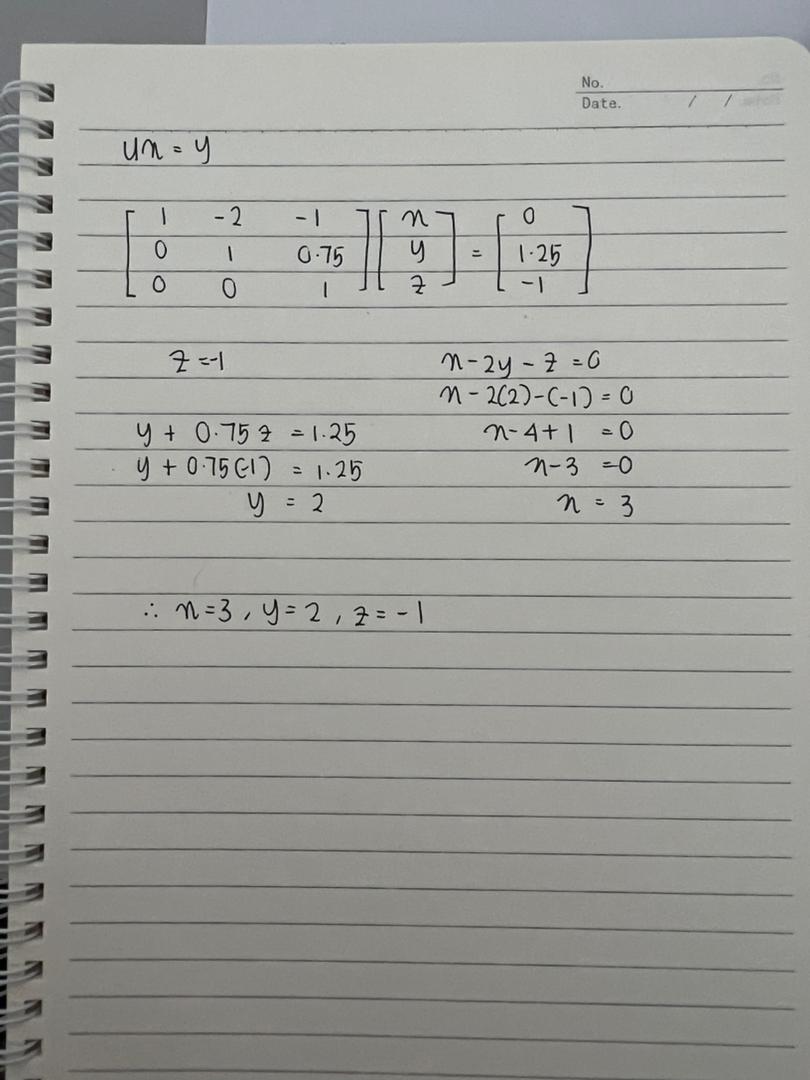 No.
Date. / /
Ux = y
[ 1 -2 -1 ] [ x ] = [ 0 ]
[ 0 1 0.75 ] [ y ] = [ 1.25 ]
[ 0 0 1 ] [ z ] = [ -1 ]
z = -1
y + 0.75z = 1.25
y + 0.75(-1) = 1.25
y = 2
x - 2y - z = 0
x - 2(2) - (-1) = 0
x - 4 + 1 = 0
x - 3 = 0
x = 3
∴ x = 3, y = 2, z = -1